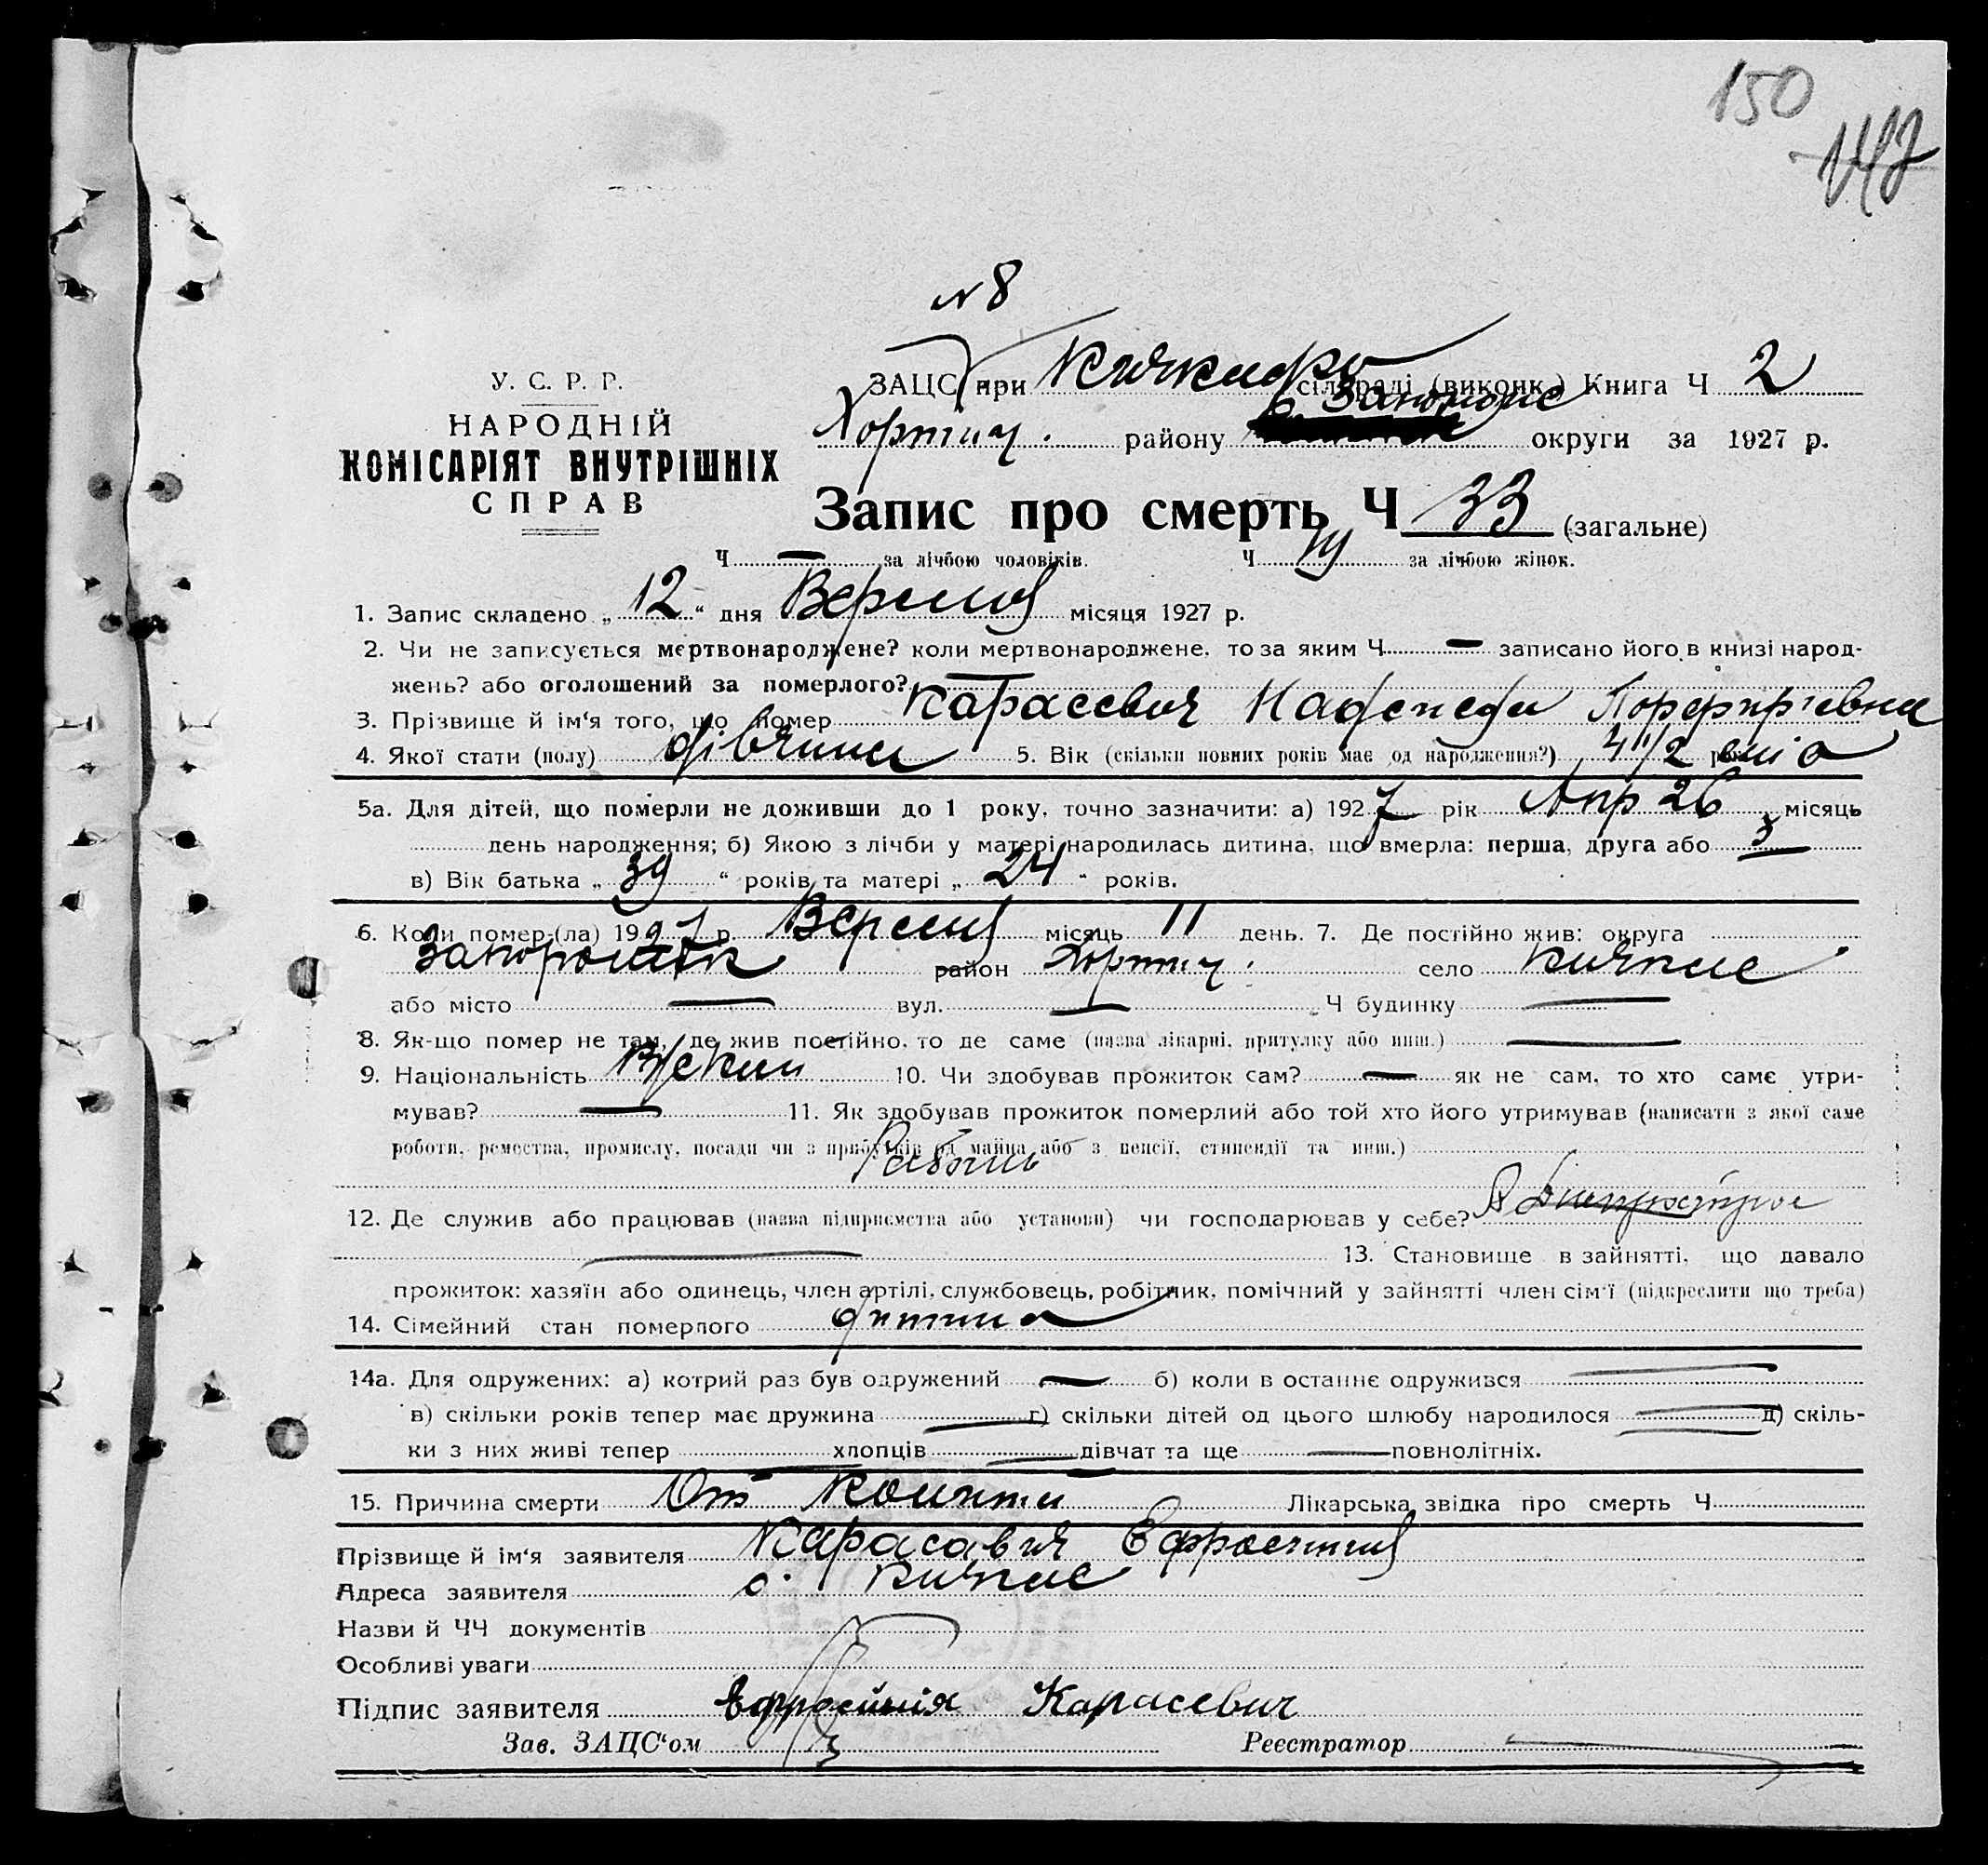 150
147
N 8
У. С. Р. Р.
НАРОДНІЙ
КОМІСАРІЯТ ВНУТРІШНІХ
СПРАВ
ЗАЦС при Кичкас сільраді (виконк.) Книга Ч 2
Хортиц. району Запоріжс округи за 1927 р.
Запис про смерть Ч 33 (загальне)
Ч — за лічбою чоловіків. Ч 19 за лічбою жінок.
1. Запис складено „ 12 “ дня Вересня місяця 1927 р.
2. Чи не записується мертвонароджене? коли мертвонароджене, то за яким Ч — записано його в книзі народ-
жень? або оголошений за померлого? —
3. Прізвище й ім‘я того, що помер Карасевич Надежда Порфирʼевна
4. Якої стати (полу) дівчина 5. Вік (скільки повних років має од народження?) 4 1/2 міс
5а. Для дітей, що померли не доживши до 1 року, точно зазначити: а) 1927 рік Апр 26 місяць
день народження; б) Якою з лічби у матері народилась дитина, що вмерла: перша, друга або 3
в) Вік батька „ 39 “ років та матері „ 24 “ років.
6. Коли помер-(ла) 1927 р. Вересня місяць 11 день. 7. Де постійно жив: округа
Запорожск район Хортиц. село Кичкас
або місто — вул. — Ч будинку —
8. Як-що помер не там, де жив постійно, то де саме (назва лікарні, притулку або инш.) —
9. Національність 10. Чи здобував прожиток сам? — як не сам, то хто саме утри-
мував? — 11. Як здобував прожиток померлий або той хто його утримував (написати з якої саме
роботи, ремества, промислу, посади чи з прибутків од майна або з пенсії, стипендії та инш.)
12. Де служив або працював (назва підприємства або установи) чи господарював у себе? Днепрострое
— 13. Становище в зайнятті, що давало
прожиток: хазяїн або одинець, член артілі, службовець, робітник, помічний у зайнятті член сім‘ї (підкреслити що треба)
14. Сімейний стан померлого дитина
14а. Для одружених: а) котрий раз був одружений — б) коли в останнє одружився —
в) скільки років тепер має дружина — г) скільки дітей од цього шлюбу народилося — д) скіль-
ки з них живі тепер — хлопців — дівчат та ще — повнолітніх.
15. Причина смерти От Колита Лікарська звідка про смерть Ч
Прізвище й ім‘я заявителя Карасавич Ефросиния
Адреса заявителя с. Кичкас
Назви й ЧЧ документів
Особливі уваги
Підпис заявителя Ефросиния Карасевич
Зав. ЗАЦС‘ом Реестратор